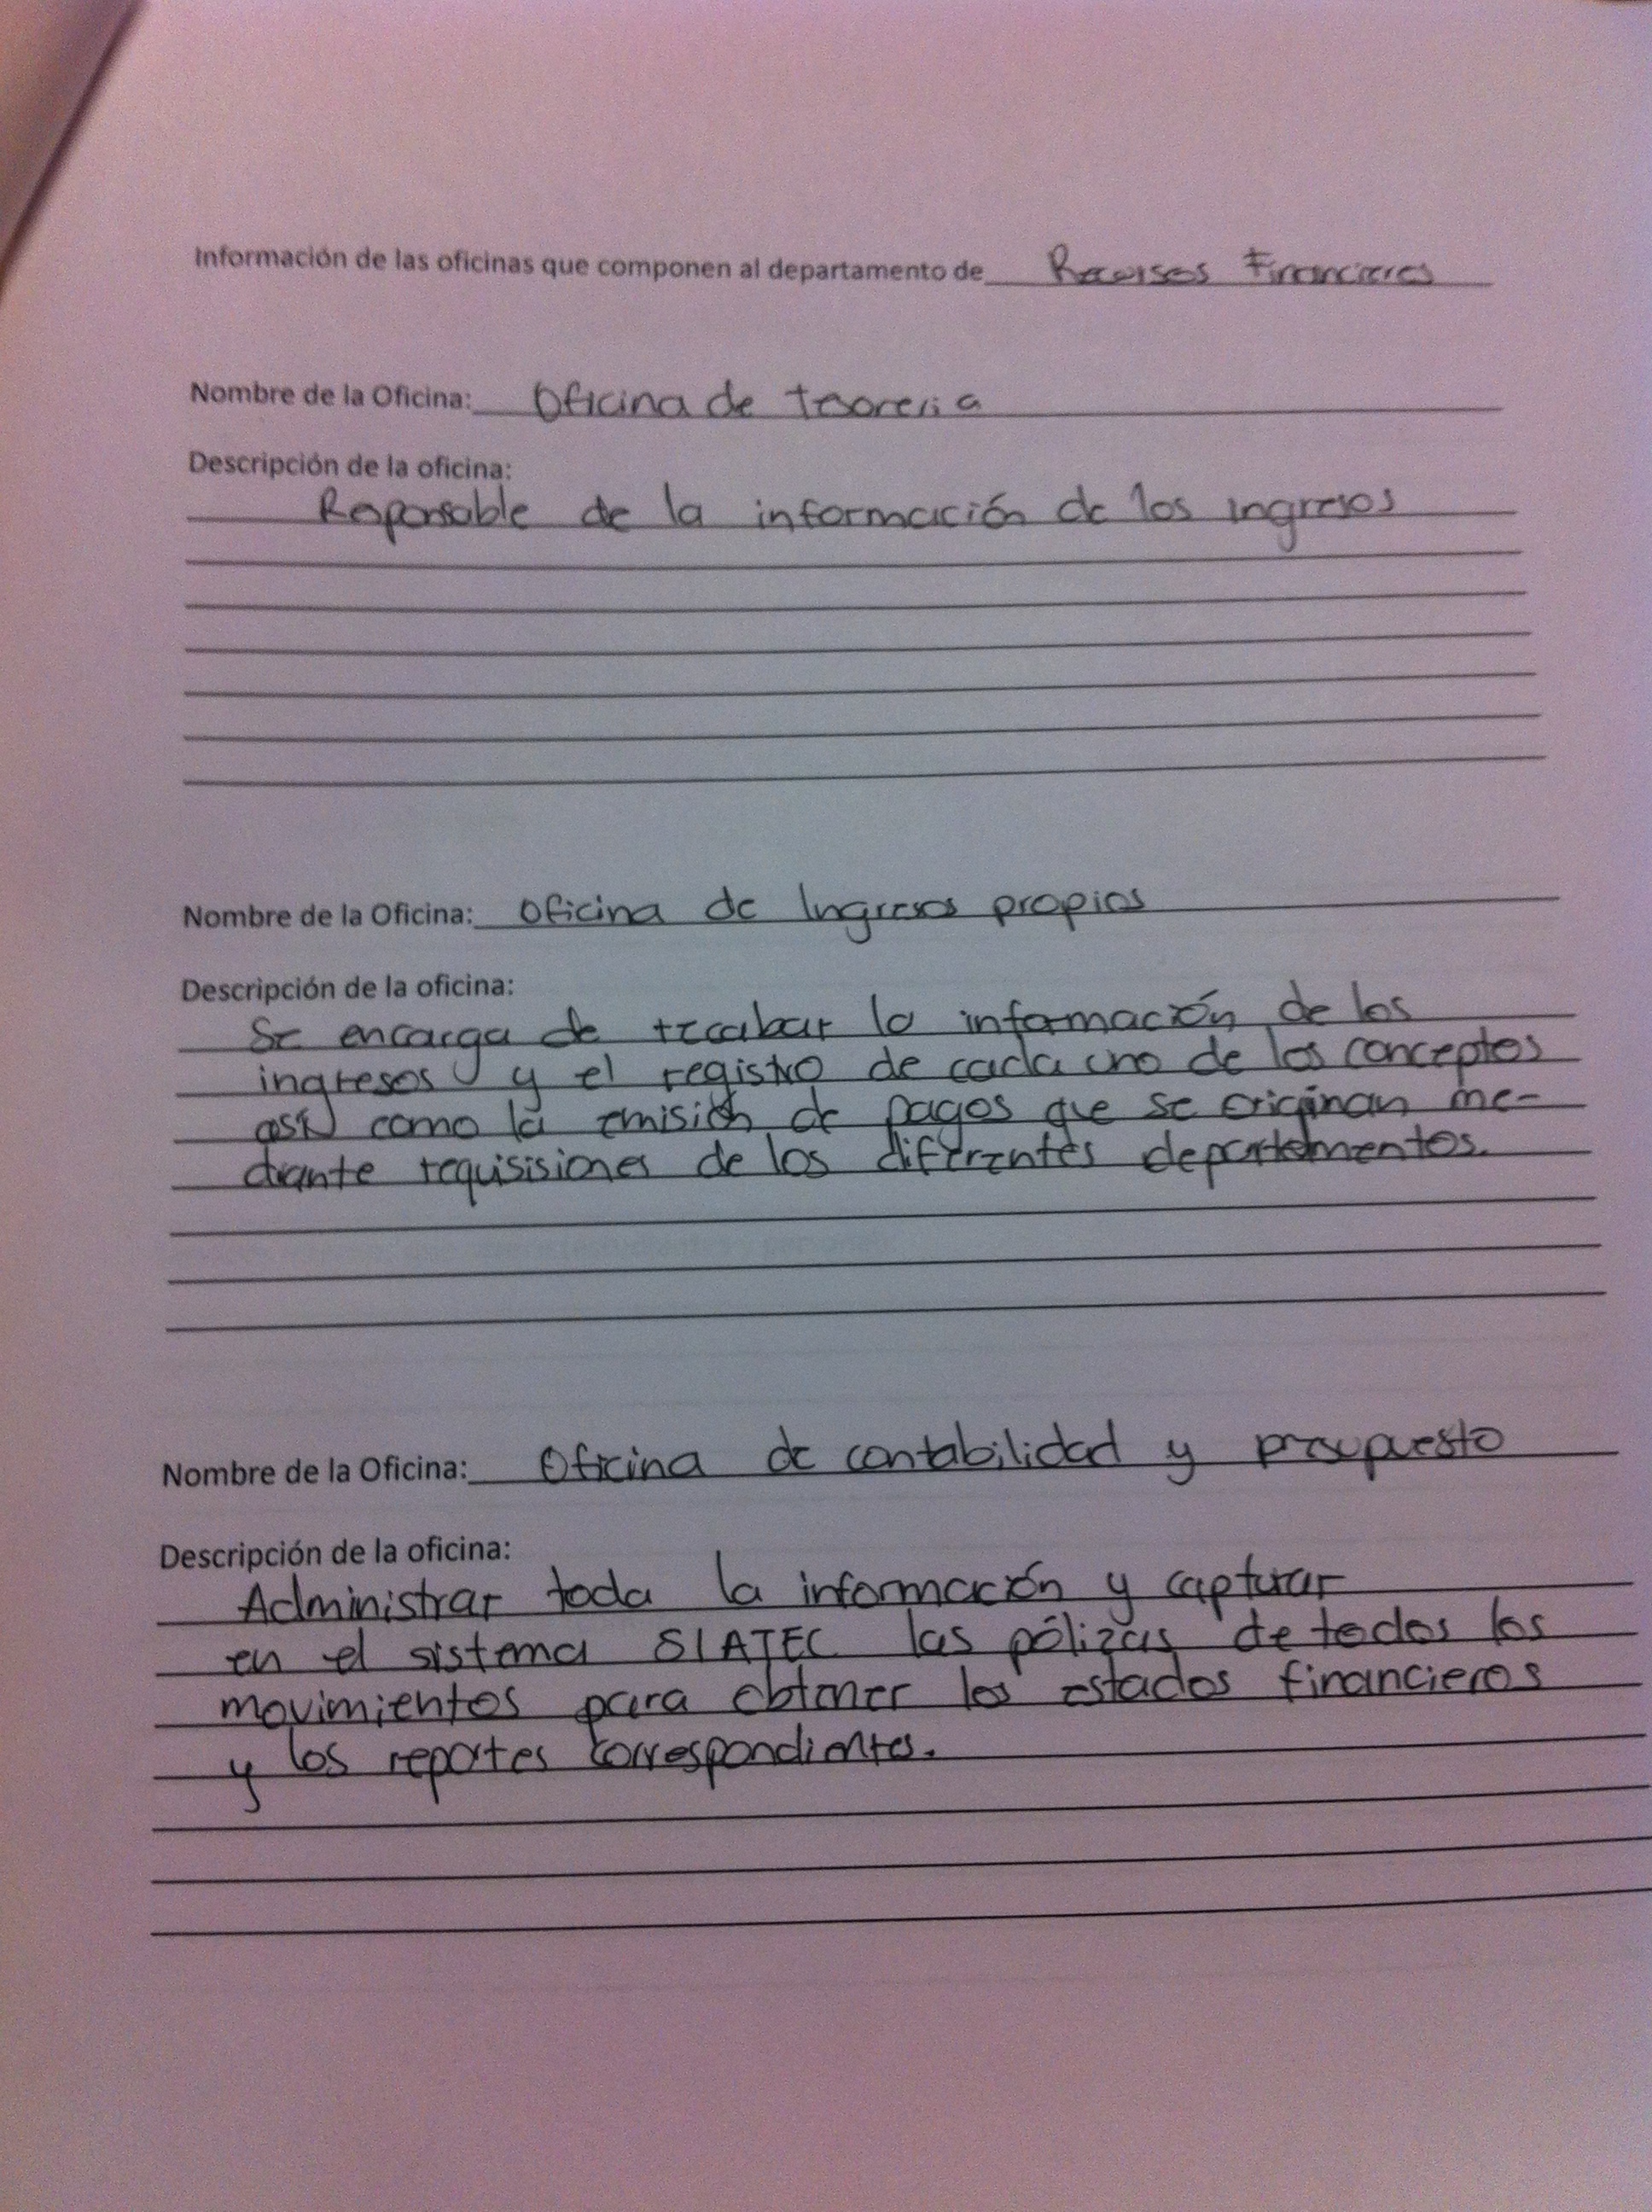 Información de las oficinas que componen al departamento de Recursos Financieros
Nombre de la Oficina: Oficina de tesoreria
Descripción de la oficina:
Responsable de la información de los ingresos
Nombre de la Oficina: Oficina de Ingresos propios
Descripción de la oficina:
Se encarga de recabar la información de los
ingresos y el registro de cada uno de los conceptos
así como la emisión de pagos que se originan me-
diante requisisiones de los diferentes departamentos.
Nombre de la Oficina: Oficina de contabilidad y presupuesto
Descripción de la oficina:
Administrar toda la información y capturar
en el sistema SIATEC las pólizas de todos los
movimientos para obtener los estados financieros
y los reportes correspondientes.